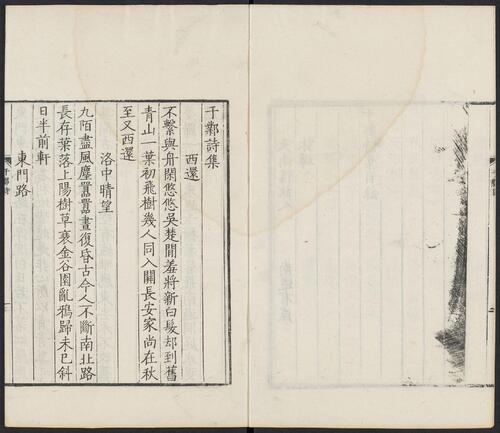 于鄴詩集
西還
不繫與舟閑悠悠吳楚間羞將新白髮却到舊
青山一葉初飛樹幾人同入關長安家尚在秋
至又西還
洛中晴望
九陌盡風塵囂囂晝復昏古今人不斷南北路
長存葉落上陽樹草衰金谷園亂鴉歸未已斜
日半前軒
東門路